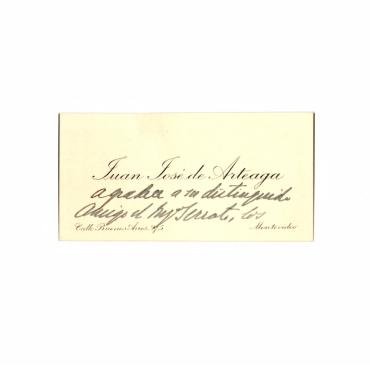 Juan José de Arteaga
agradece a su distinguido
amigo el Ing Serrato, los
Calle Buenos Aires
Montevideo